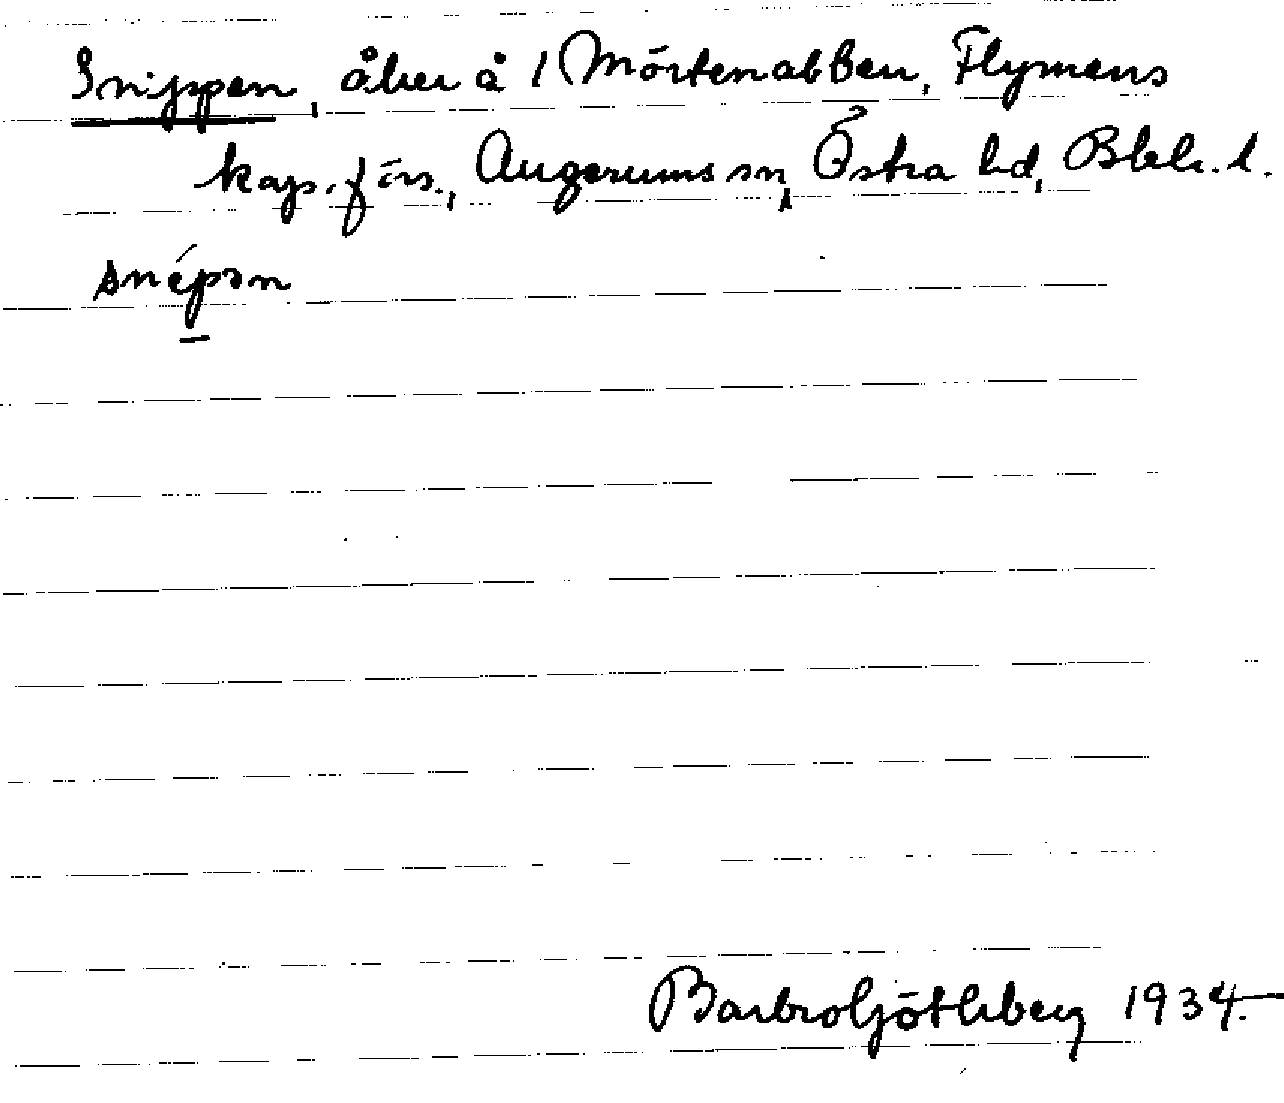 Snippen, åker å 1 Mörtenabben, Flymens
kap.förs., Augerums sn, Östra hd, Blek. l.
snépən
Barbro Götlsberg 1934.